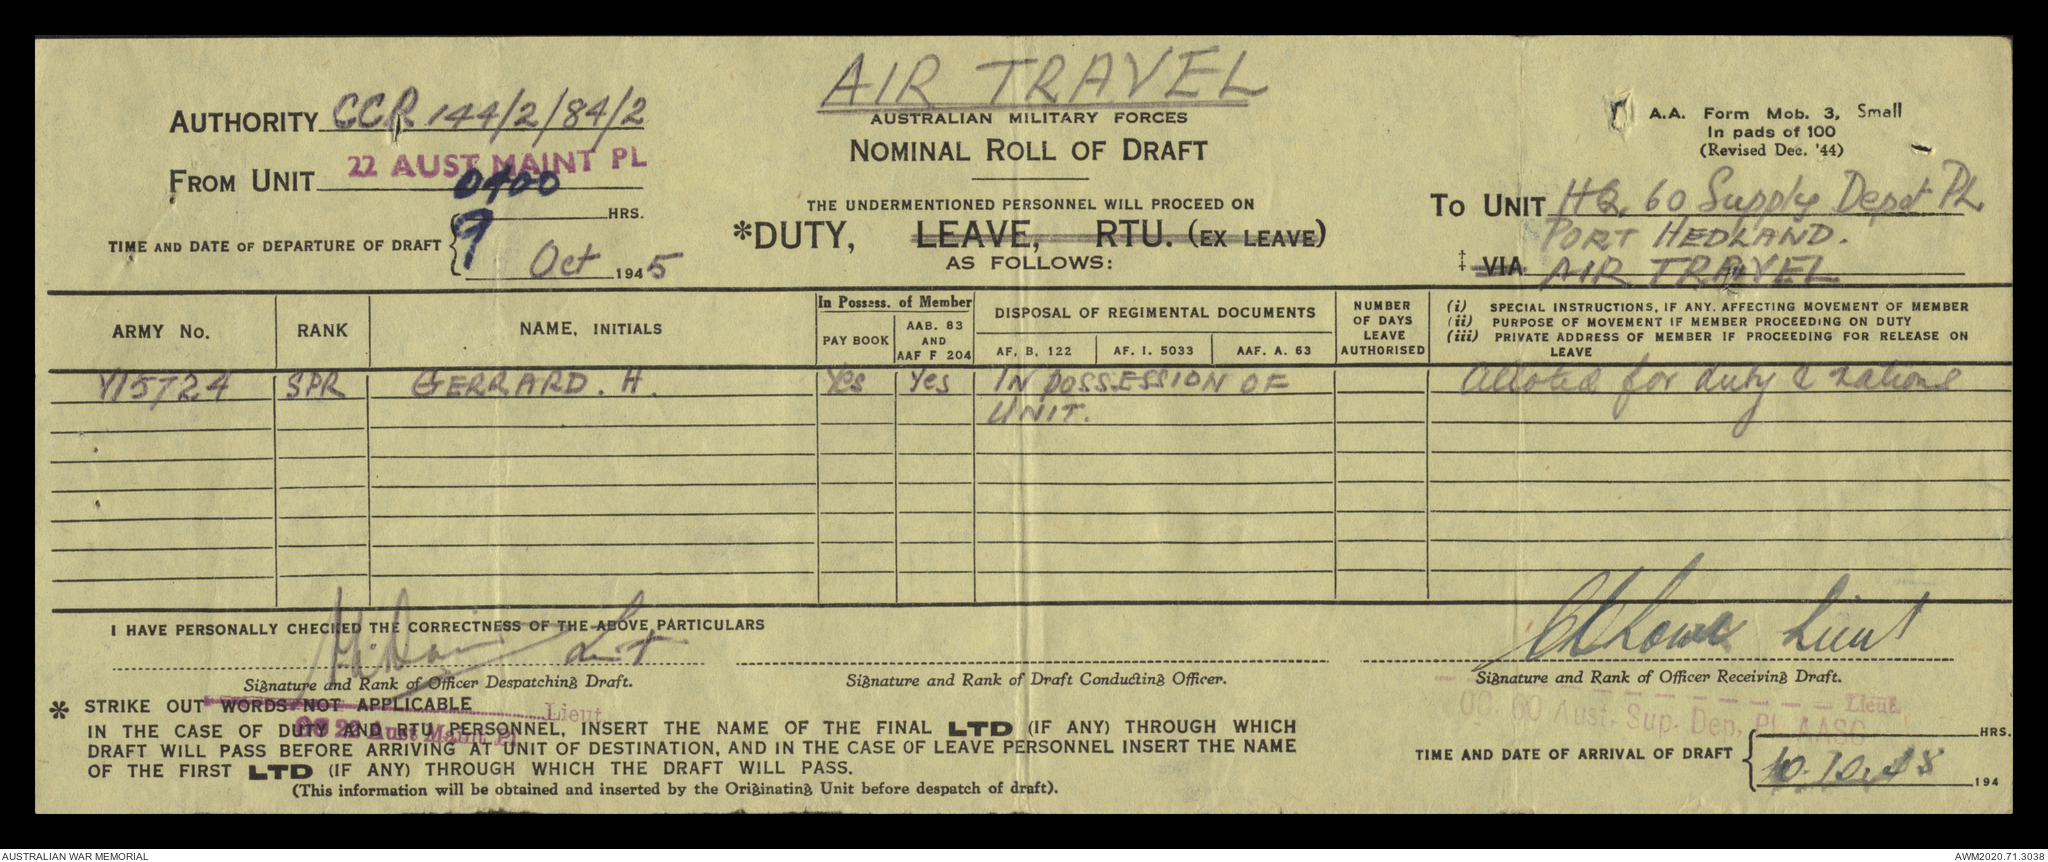 AIR TRAVEL
AUTHORITY CCR 144/2/84/2
AUSTRALIAN MILITARY FORCES
A.A. Form Mob. 3, Small
In pads of 100
(Revised Dec. '44)
NOMINAL ROLL OF DRAFT
FROM UNIT 22 AUST MAINT PL
0900 HRS.
TIME AND DATE OF DEPARTURE OF DRAFT 9 Oct 1945
THE UNDERMENTIONED PERSONNEL WILL PROCEED ON
*DUTY, LEAVE, RTU. (EX LEAVE)
AS FOLLOWS:
TO UNIT HQ. 60 Supply Depot PL
PORT HEDLAND.
‡ VIA AIR TRAVEL
ARMY No.
RANK
NAME, INITIALS
In Possess. of Member
PAY BOOK
AAB. 83
AND
AAF F 204
DISPOSAL OF REGIMENTAL DOCUMENTS
AF. B. 122
AF. I. 5033
AAF. A. 63
NUMBER
OF DAYS
LEAVE
AUTHORISED
(i) SPECIAL INSTRUCTIONS, IF ANY, AFFECTING MOVEMENT OF MEMBER
(ii) PURPOSE OF MOVEMENT IF MEMBER PROCEEDING ON DUTY
(iii) PRIVATE ADDRESS OF MEMBER IF PROCEEDING FOR RELEASE ON
LEAVE
V15724 SPR GERRARD. H. Yes Yes IN POSSESSION OF Alloted for duty & rations
UNIT.
I HAVE PERSONALLY CHECKED THE CORRECTNESS OF THE ABOVE PARTICULARS
Lieut
Signature and Rank of Officer Despatching Draft.
Signature and Rank of Draft Conducting Officer.
Signature and Rank of Officer Receiving Draft.
Lieut
OC 22 Aust Maint Pl
Lieut.
OC. 60 Aust. Sup. Dep. Pl. AASC
* STRIKE OUT WORDS NOT APPLICABLE
IN THE CASE OF DUTY AND RTU PERSONNEL, INSERT THE NAME OF THE FINAL LTD (IF ANY) THROUGH WHICH
DRAFT WILL PASS BEFORE ARRIVING AT UNIT OF DESTINATION, AND IN THE CASE OF LEAVE PERSONNEL INSERT THE NAME
OF THE FIRST LTD (IF ANY) THROUGH WHICH THE DRAFT WILL PASS.
(This information will be obtained and inserted by the Originating Unit before despatch of draft).
HRS.
TIME AND DATE OF ARRIVAL OF DRAFT 10.10.45 194
AUSTRALIAN WAR MEMORIAL
AWM2020.71.3038